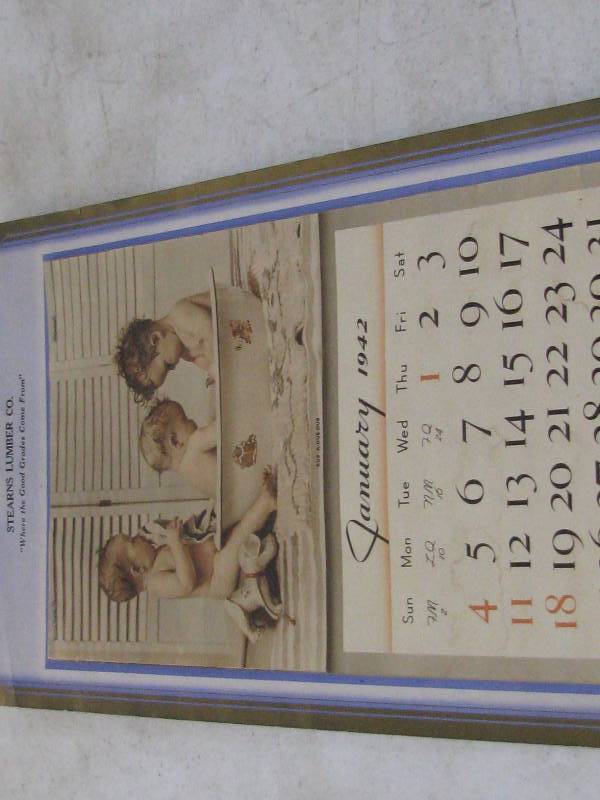 STEARNS LUMBER CO.
"Where the Good Grades Come From"
RUB A DUB DUB
January 1942
Sun Mon Tue Wed Thu Fri Sat
FM LQ NM FQ 1 2 3
2 10 16 24
4 5 6 7 8 9 10
11 12 13 14 15 16 17
18 19 20 21 22 23 24
26 27 28 29 30 31